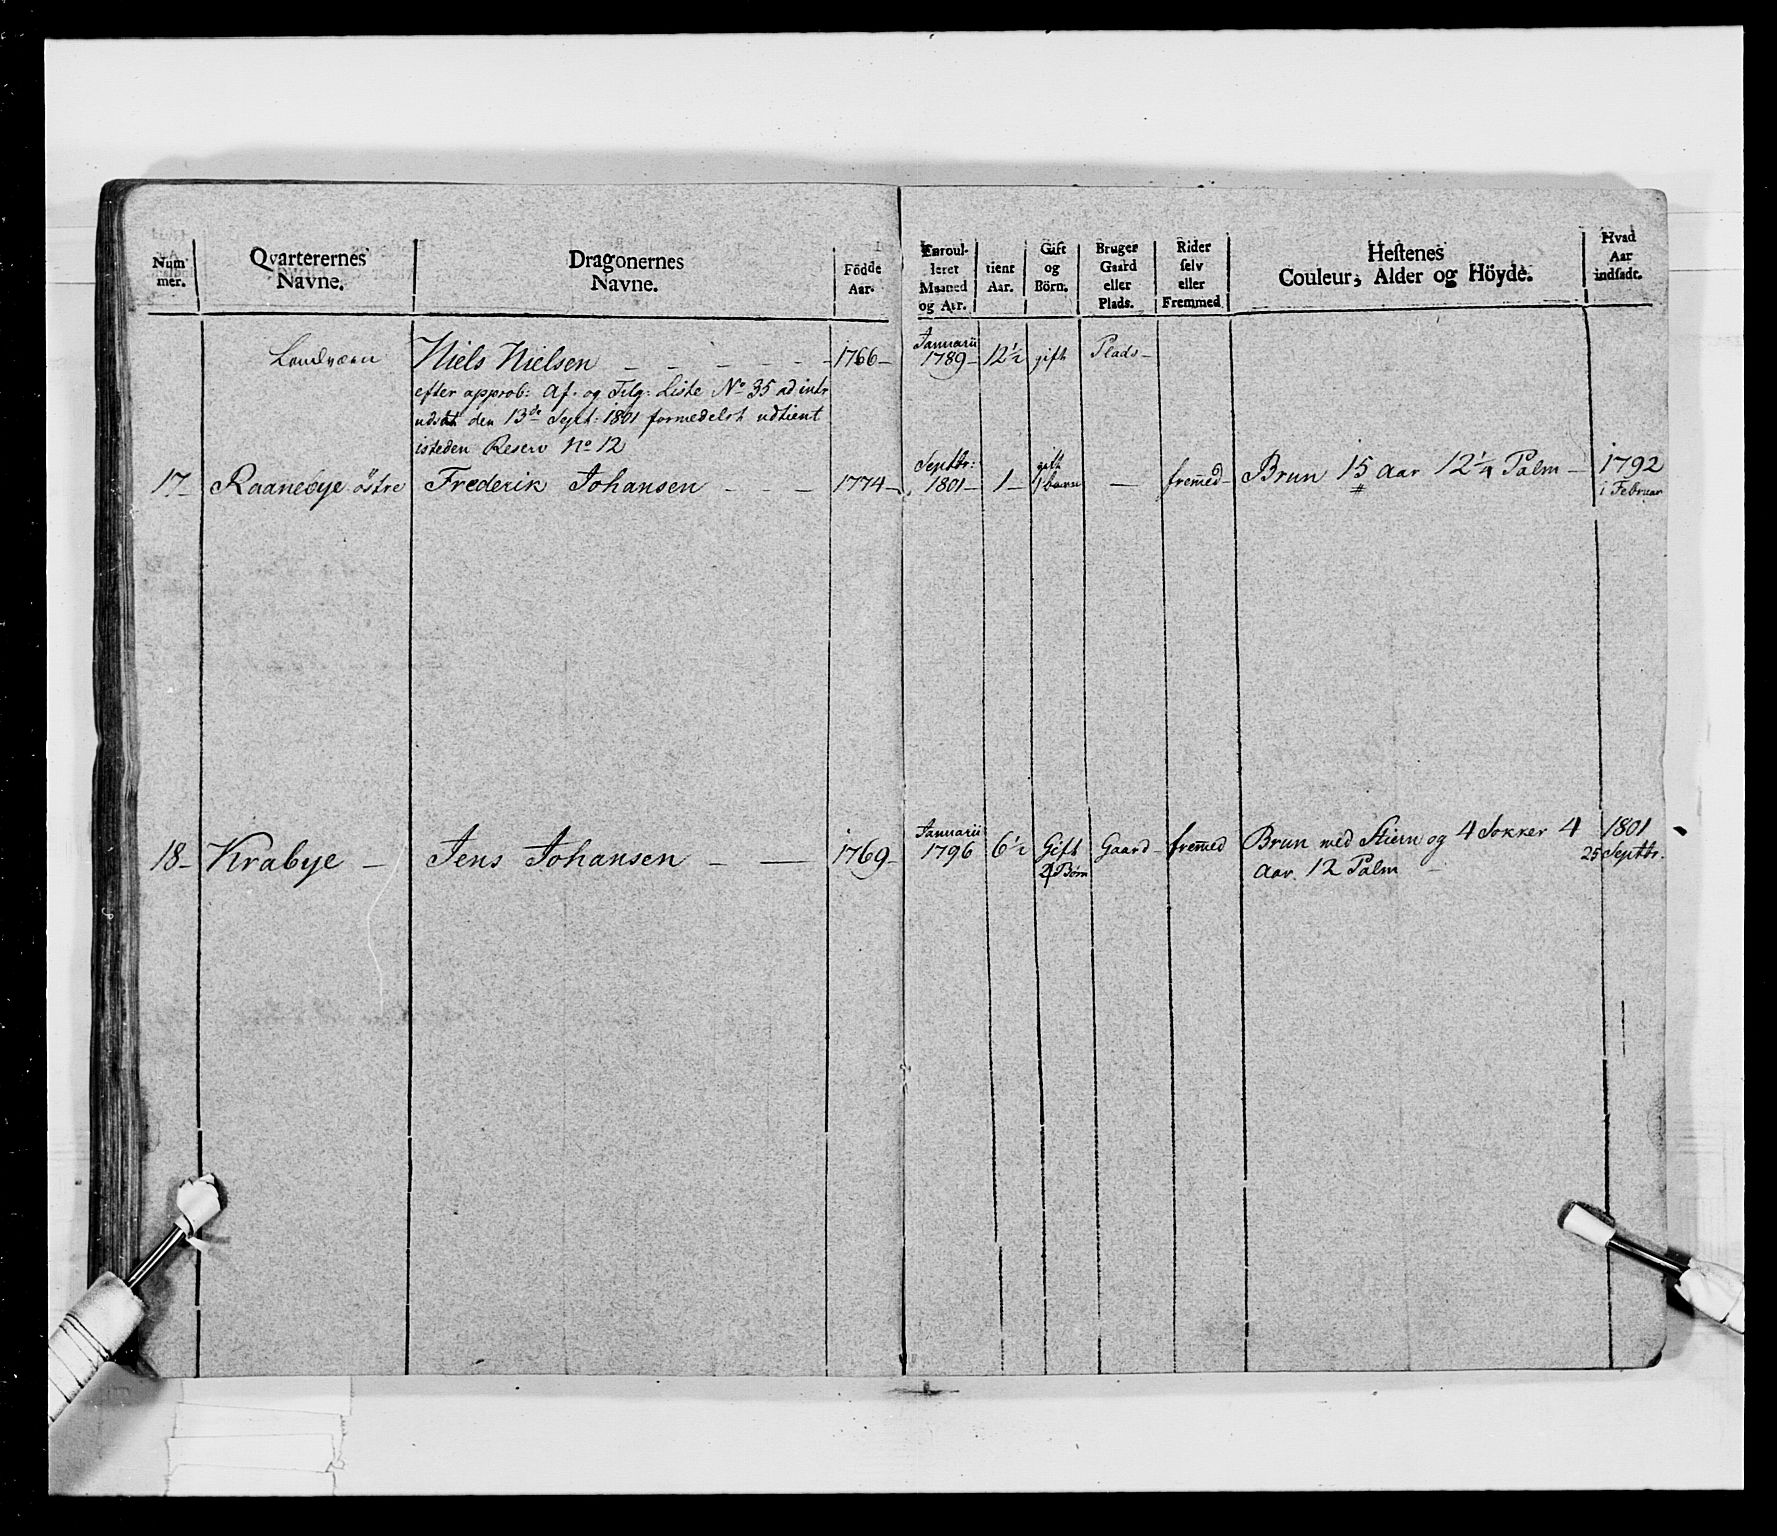 Num
mer.
Qvarterernes
Navne.
Dragonernes
Navne.
Födde
Aar.
Enroul-
leret
Maaned
og Aar.
tient
Aar.
Gift
og
Börn.
Bruger
Gaard
eller
Plads.
Rider
selv
eller
Fremmed
Hestenes
Couleur, Alder og Höyde.
Hvad
Aar
indsadt.
Landværn Niels Nielsen - - - - - 1766 - Januarii 1789 - 12 1/2 gift Plads -
efter approb: Af. og Tilg: Liste No 35 ad intr
udsat den 13de Sept: 1801 formedelst udtient
isteden Reserv No 12
17 - Raanebye östre Frederik Johansen - - - 1774 - Septbr: 1801 - 1 - gift 1 barn — fremed - Brun 15 Aar 12 1/4 Palm - 1792
i Februar
18 - Krabye - Jens Johansen - — 1769 - Januarii 1796 6 1/2 Gift Gaard - fremed Brun med Stiern og 4 Sokker 4 1801
2 Børn Aar. 12 Palm 25 Septbr.